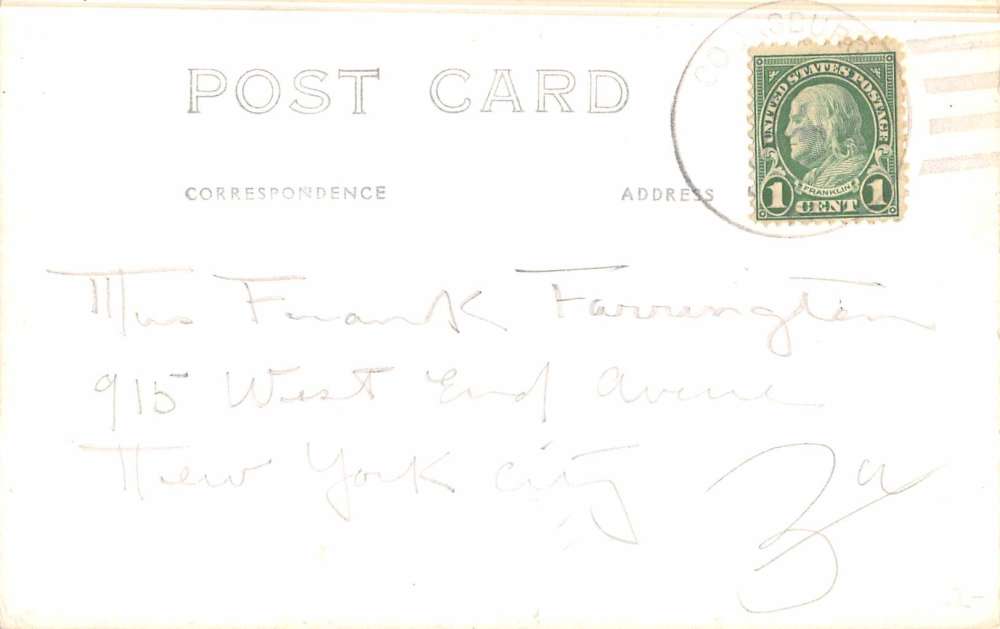 POST CARD
CORRESPONDENCE
ADDRESS
UNITED STATES POSTAGE
FRANKLIN
1 CENT 1
Mrs Frank Farrington
915 West End Avenue
New York City
3a